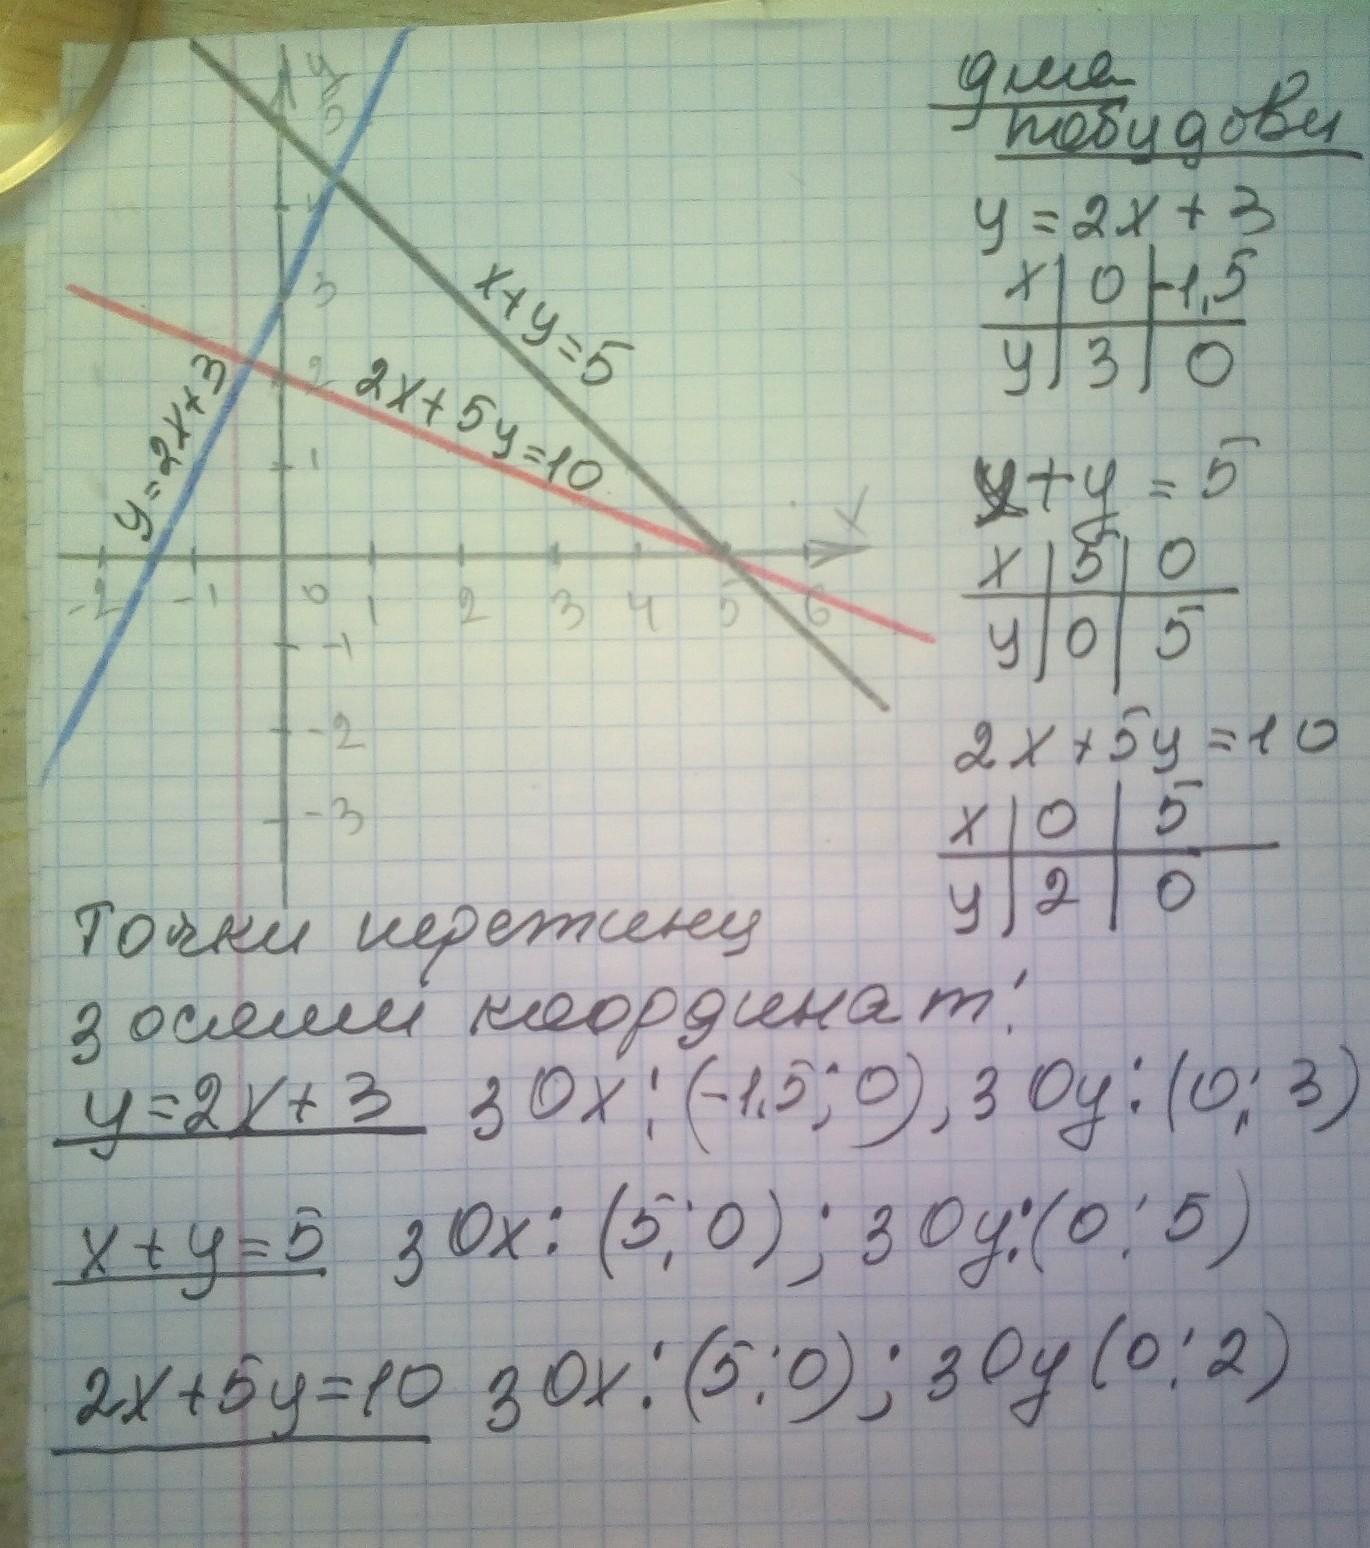 y
5
3
2
1
-2 -1 0 1 2 3 4 5 6
x
-1
-2
-3
y=2x+3
x+y=5
2x+5y=10
для
побудови
y = 2x + 3
x | 0 | -1,5
y | 3 | 0
x + y = 5
x | 5 | 0
y | 0 | 5
2x + 5y = 10
x | 0 | 5
y | 2 | 0
Точки перетину
з осями координат:
y=2x+3 з Ox: (-1,5; 0), з Oy: (0; 3)
x+y=5 з Ox: (5; 0); з Oy: (0; 5)
2x+5y=10 з Ox: (5; 0); з Oy (0; 2)